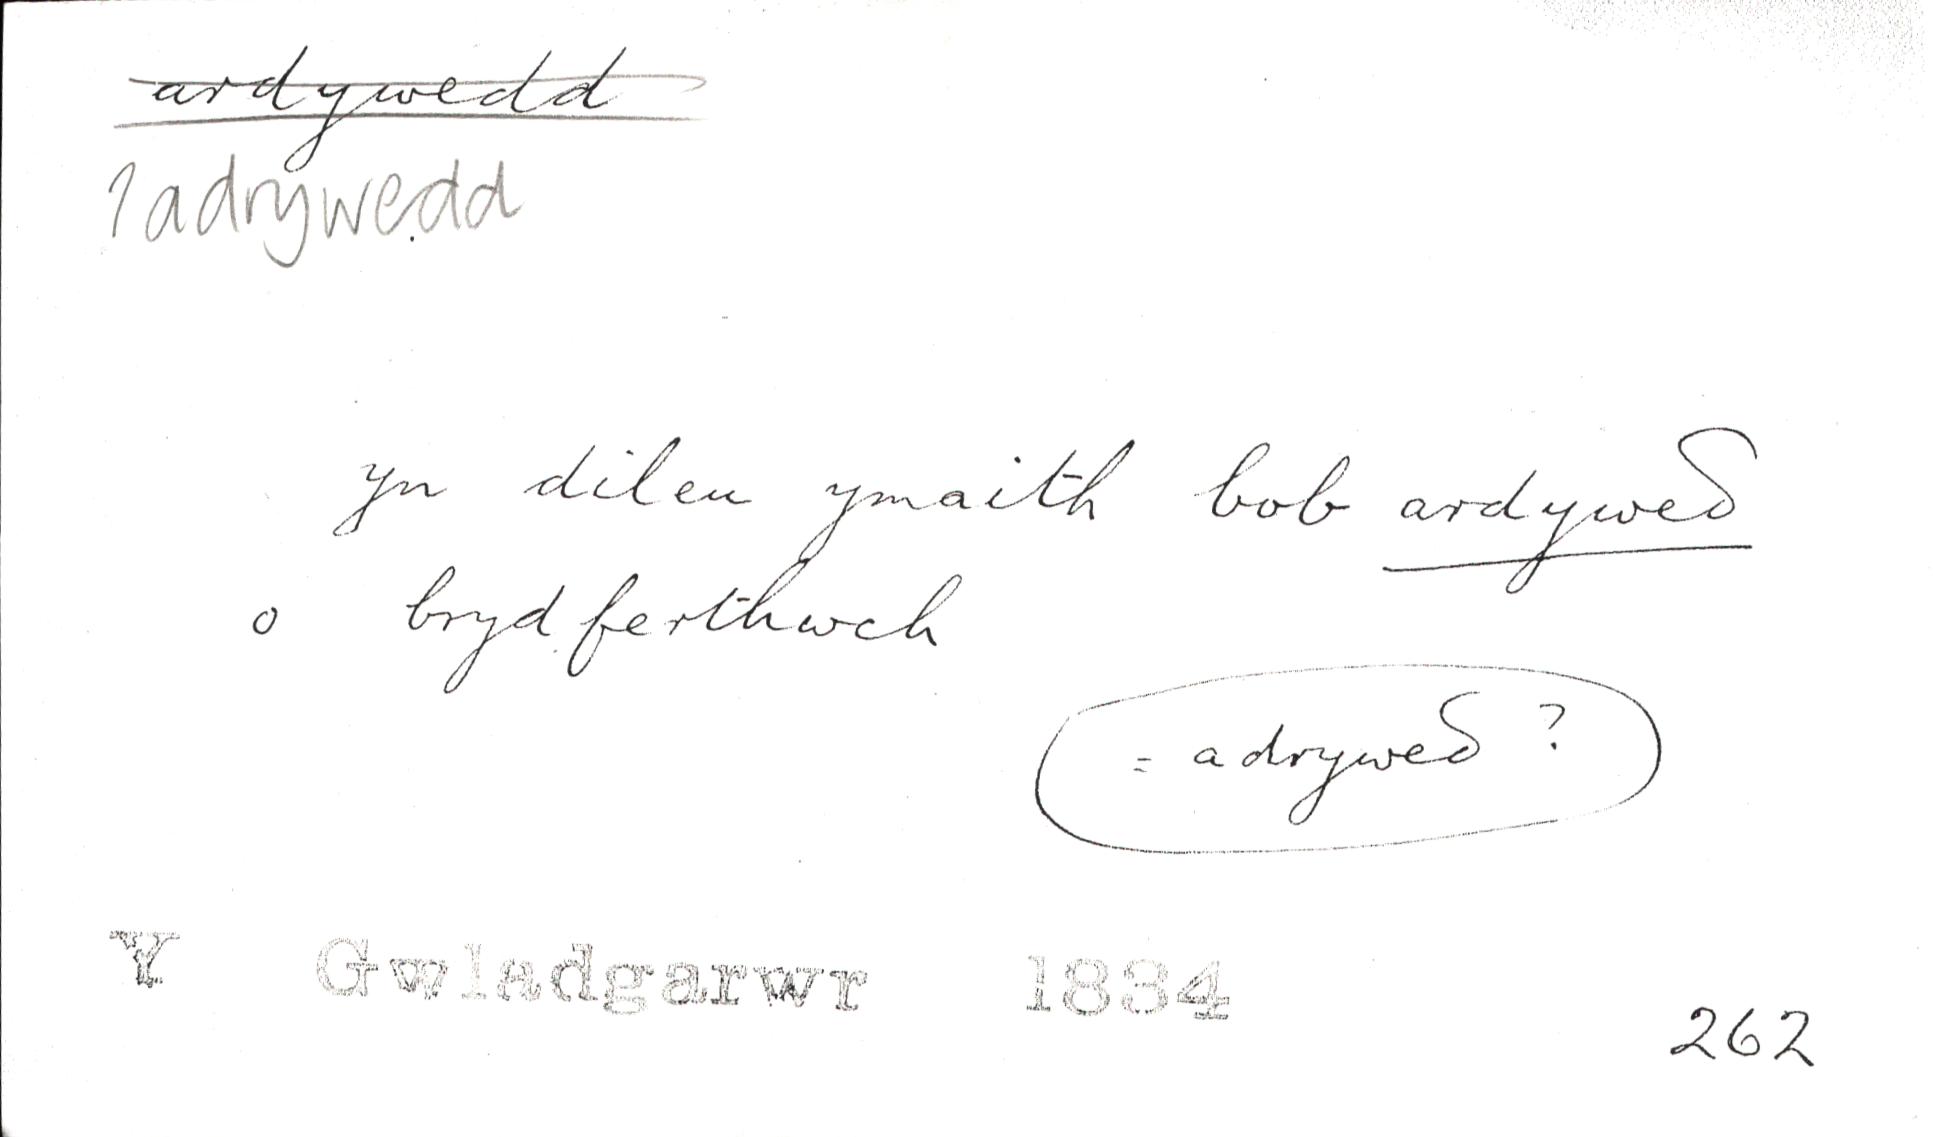 ardywedd
?adrywedd
yn dileu ymaith bob ardyweδ
o brydferthwch
= adryweδ ?
Y Gwladgarwr 1834
262